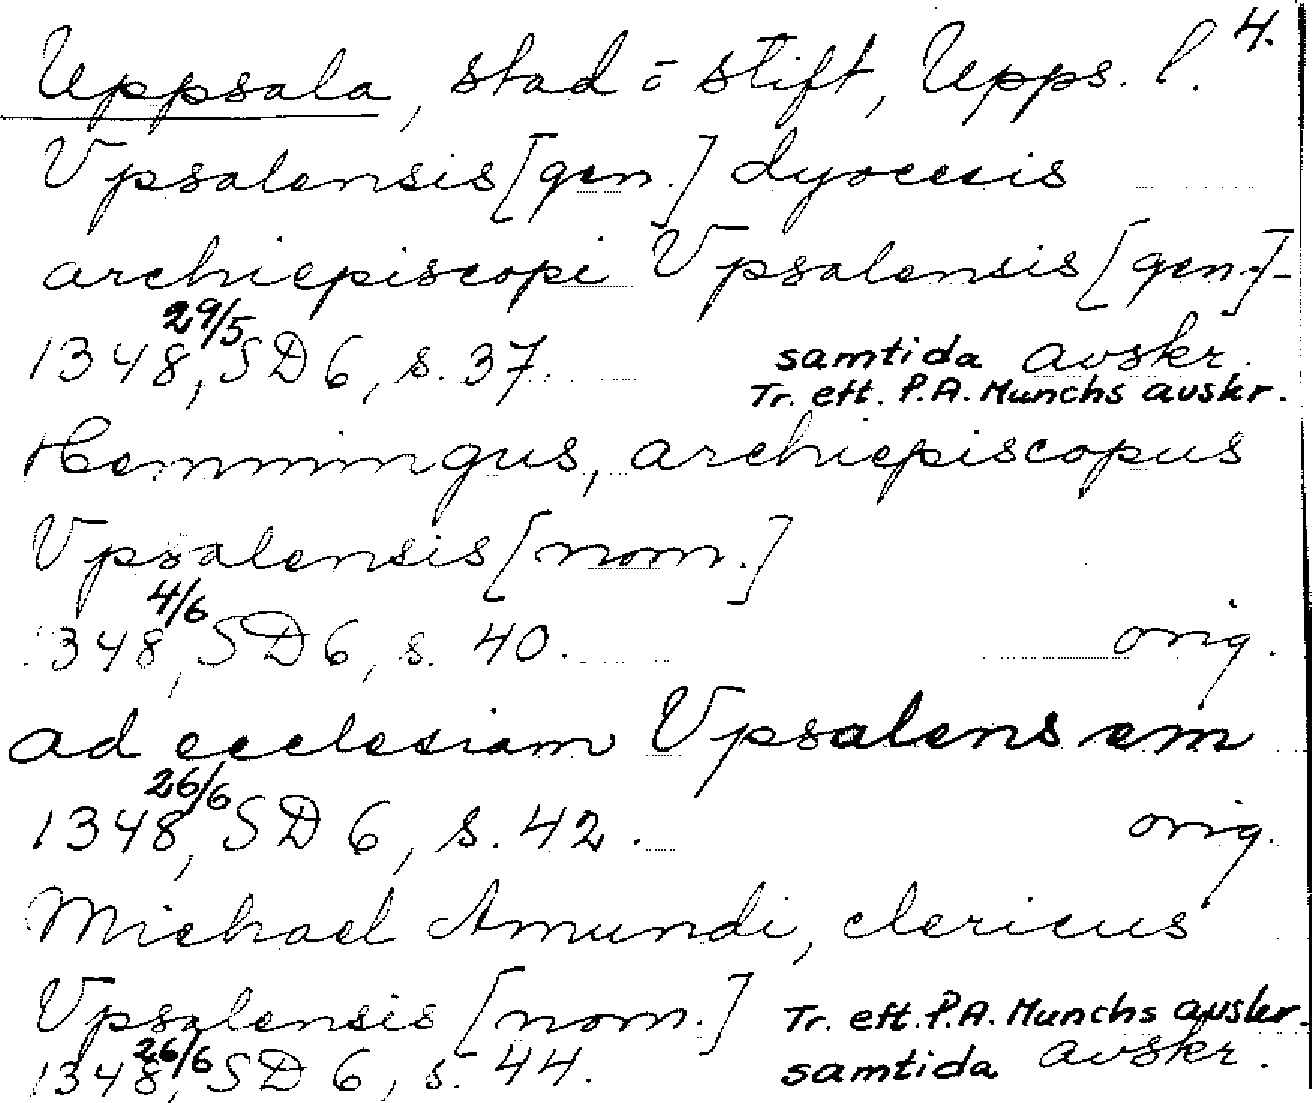 4.
Uppsala, stad o stift, Upps. l.
Vpsalensis [gen.] dyocesis
archiepiscopi Vpsalensis [gen.]-
29/5
1348, SD 6, s. 37. samtida avskr.
Tr. eft. P.A. Munchs avskr.
Hemmingus, archiepiscopus
Vpsalensis [nom.]
4/6
1348, SD 6, s. 40. orig.
ad ecclesiam Vpsalensem
26/6
1348, SD 6, s. 42. orig.
Michael Amundi, clericus
Vpsalensis [nom.] Tr. eft. P.A. Munchs avskr.
26/6
1348, SD 6, s. 44. samtida avskr.